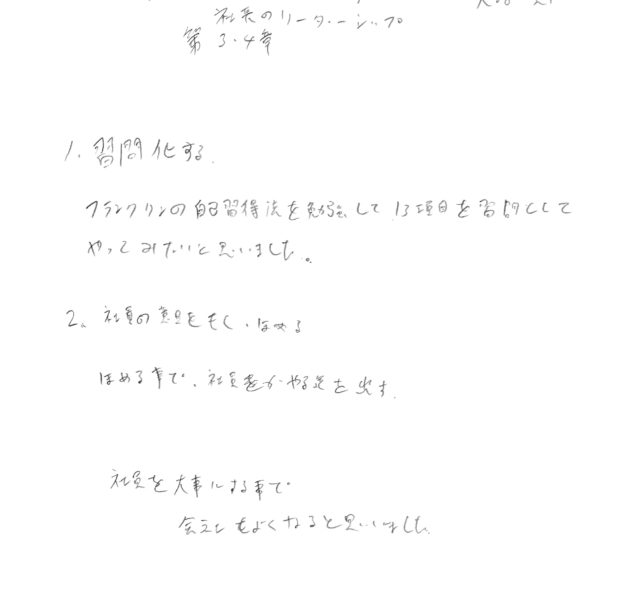 社長のリーダーシップ
第3.4章
1. 習問化する.
フランクリンの自己習得法を勉強して13項目を習問として
やってみたいと思いました。
2. 社員の意見をきく.ほめる
ほめる事で、社員をがやる気を出す.
社員を大事にする事で
会社もよくなると思いました